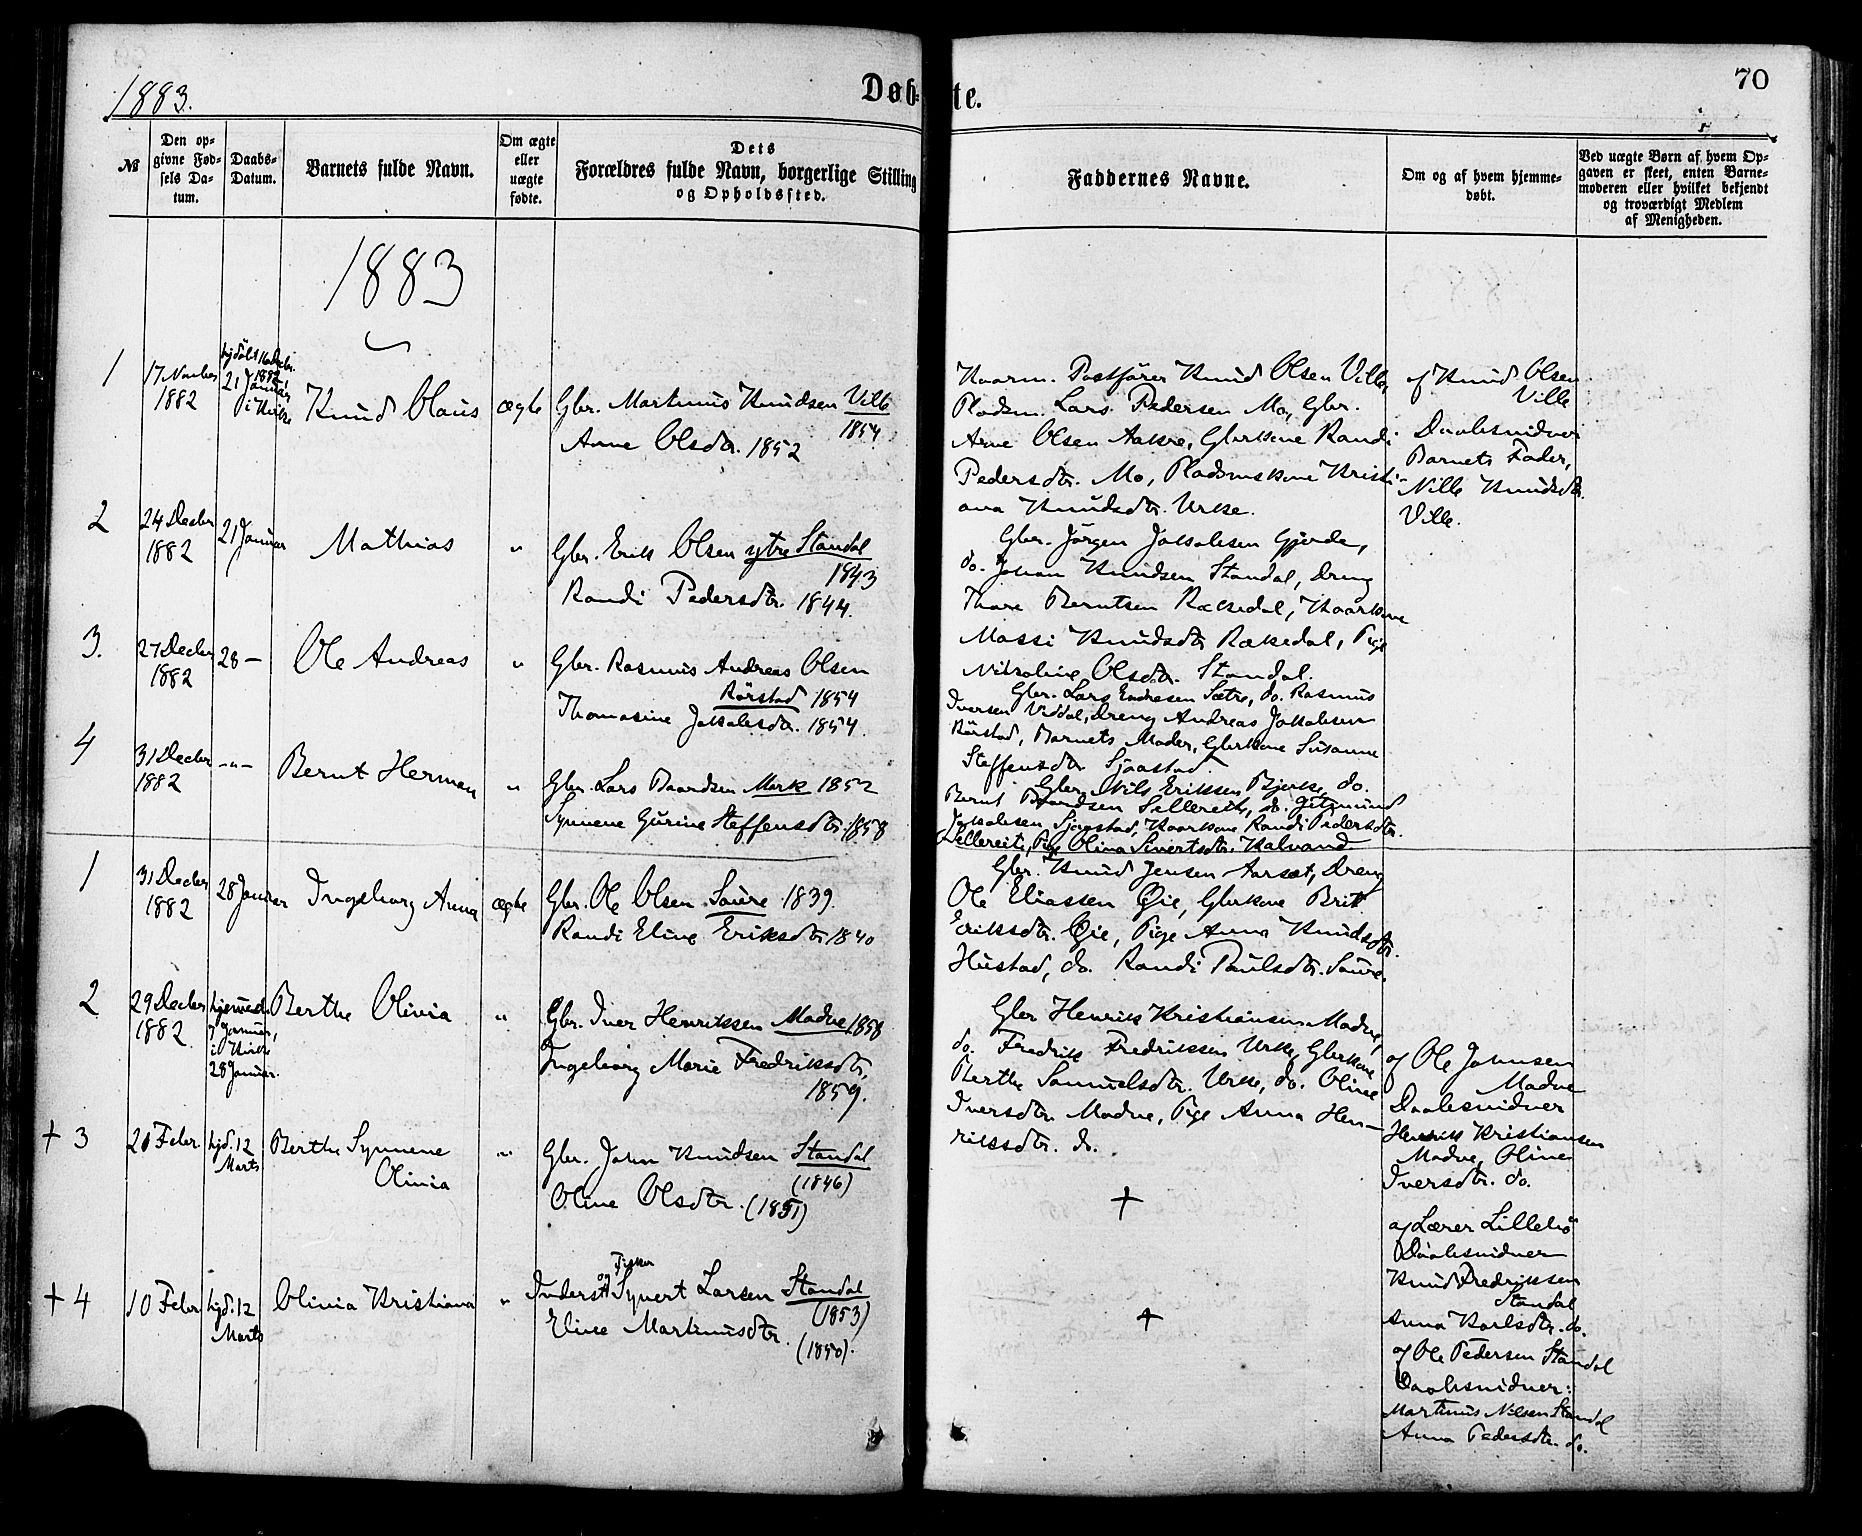 1883.
Døb-
te.
70
№
Den op-
givne Fød-
sels Da-
tum.
Daabs-
Datum.
Barnets fulde Navn.
Om ægte
eller
uægte
fødte.
Dets
Forældres fulde Navn, borgerlige Stilling
og Opholdssted.
Faddernes Navne.
Om og af hvem hjemme-
døbt.
Ved uægte Børn af hvem Op-
gaven er skeet, enten Barne-
moderen eller hvilket bekjendt
og troværdigt Medlem
af Menigheden.
1883
1
17 Novber
1882
hjdöbt 16 Decbr.
1882,
21 Januar
i Kirke
Knud Olaus
ægte
Gbr. Martinus Knudsen Ville
1854
Anne Olsdtr. 1852
Kaarm. Postfører Knud Olsen Ville,
Pladsm. Lars Pedersen Mo, Gbr.
Arne Olsen Aakre, Gbrkone Randi
Pedersdtr. Mo, Pladsmskone Kristi-
ana Knudsdtr. Urke.
af Knud Olsen
Ville
Daabsvidner
Barnets Fader,
Nille Knudsdtr.
Ville.
2
24 Decbr
1882
21 Januar
Mathias
"
Gbr. Erik Olsen ytre Standal
1843
Randi Pedersdtr. 1844.
Gbr. Jörgen Jakobsen Gjerde,
do. Johan Knudsen Standal, Dreng
Thore Berntsen Rækedal, Kaarkone
Massi Knudsdtr Rækedal, Pige
Nikoline Olsdtr. Standal.
3.
27 Decbr
1882
28 —
Ole Andreas
"
Gbr. Rasmus Andreas Olsen
Rörstad 1854
Thomasine Jakobsdtr. 1854.
Gbr. Lars Endresen Sætre, do. Rasmus
Iversen Viddal, Dreng Andreas Jakobsen
Rörstad, Barnets Moder, Gbrkone Susanne
Steffensdtr Sjaastad.
4
31 Decbr
1882
-"-
Bernt Herman
"
Gbr. Lars Baardsen Mork 1852
Synnene Gurine Steffensdtr. 1858
Gbr. Nils Eriksen Bjerke, do.
Bernt Baardsen Sellereite, do. Gitmund
Jakobsen Sjaastad, Kaarkone Randi Pedersdtr.
Sellereite, Pige Olina Sivertsdtr. Kalvand
1
31 Decber
1882
28 Januar
Ingeborg Anna
ægte
Gbr. Ole Olsen Saure 1839.
Randi Eline Eriksdtr. 1840
Gbr. Knud Jensen Aarsæt, Dreng
Ole Eliassen Øie, Gbrkone Brit
Eriksdtr. Øie, Pige Anna Knudsdtr.
Hustad, do. Randi Paulsdtr. Saure.
2
29 Decber
1882
hjemmed.
7 Januar,
i Kirke
28 Januar.
Berthe Olivia
"
Gbr. Iver Henrikssen Madve 1858
Ingeborg Marie Fredriksdtr,
1859.
Gbr Henrik Kristiansen Madve,
do. Fredrik Fredrikssen Urke, Gbrkone
Berthe Samuelsdtr. Urke, do. Oline
Iversdtr. Madve, Pige Anna Hen-
riksdtr. do.
af Ole Johnsen
Madve
Daabsvidner
Henrik Kristiansen
Madve, Oline
Iversdtr. do.
+ 3
20 Febr
hjd. 12
Marts
Berthe Synnene
Olivia
"
Gbr. John Knudsen Standal
(1846)
Oline Olsdtr. (1851)
+
af Lærer Lillebö
Daabsvidner
Knud Fredriksen
Standal
Anna Karlsdtr. do.
+ 4
10 Febr
hjd. 12
Marts
Olivia Kristiana
"
Inderst og Fisker Syvert Larsen Standal
(1853)
Eline Martinusdtr.
(1850).
+
af Ole Pedersen Standal
Daabsvidner:
Martinus Nilsen Standal
Anna Pedersdtr. do.